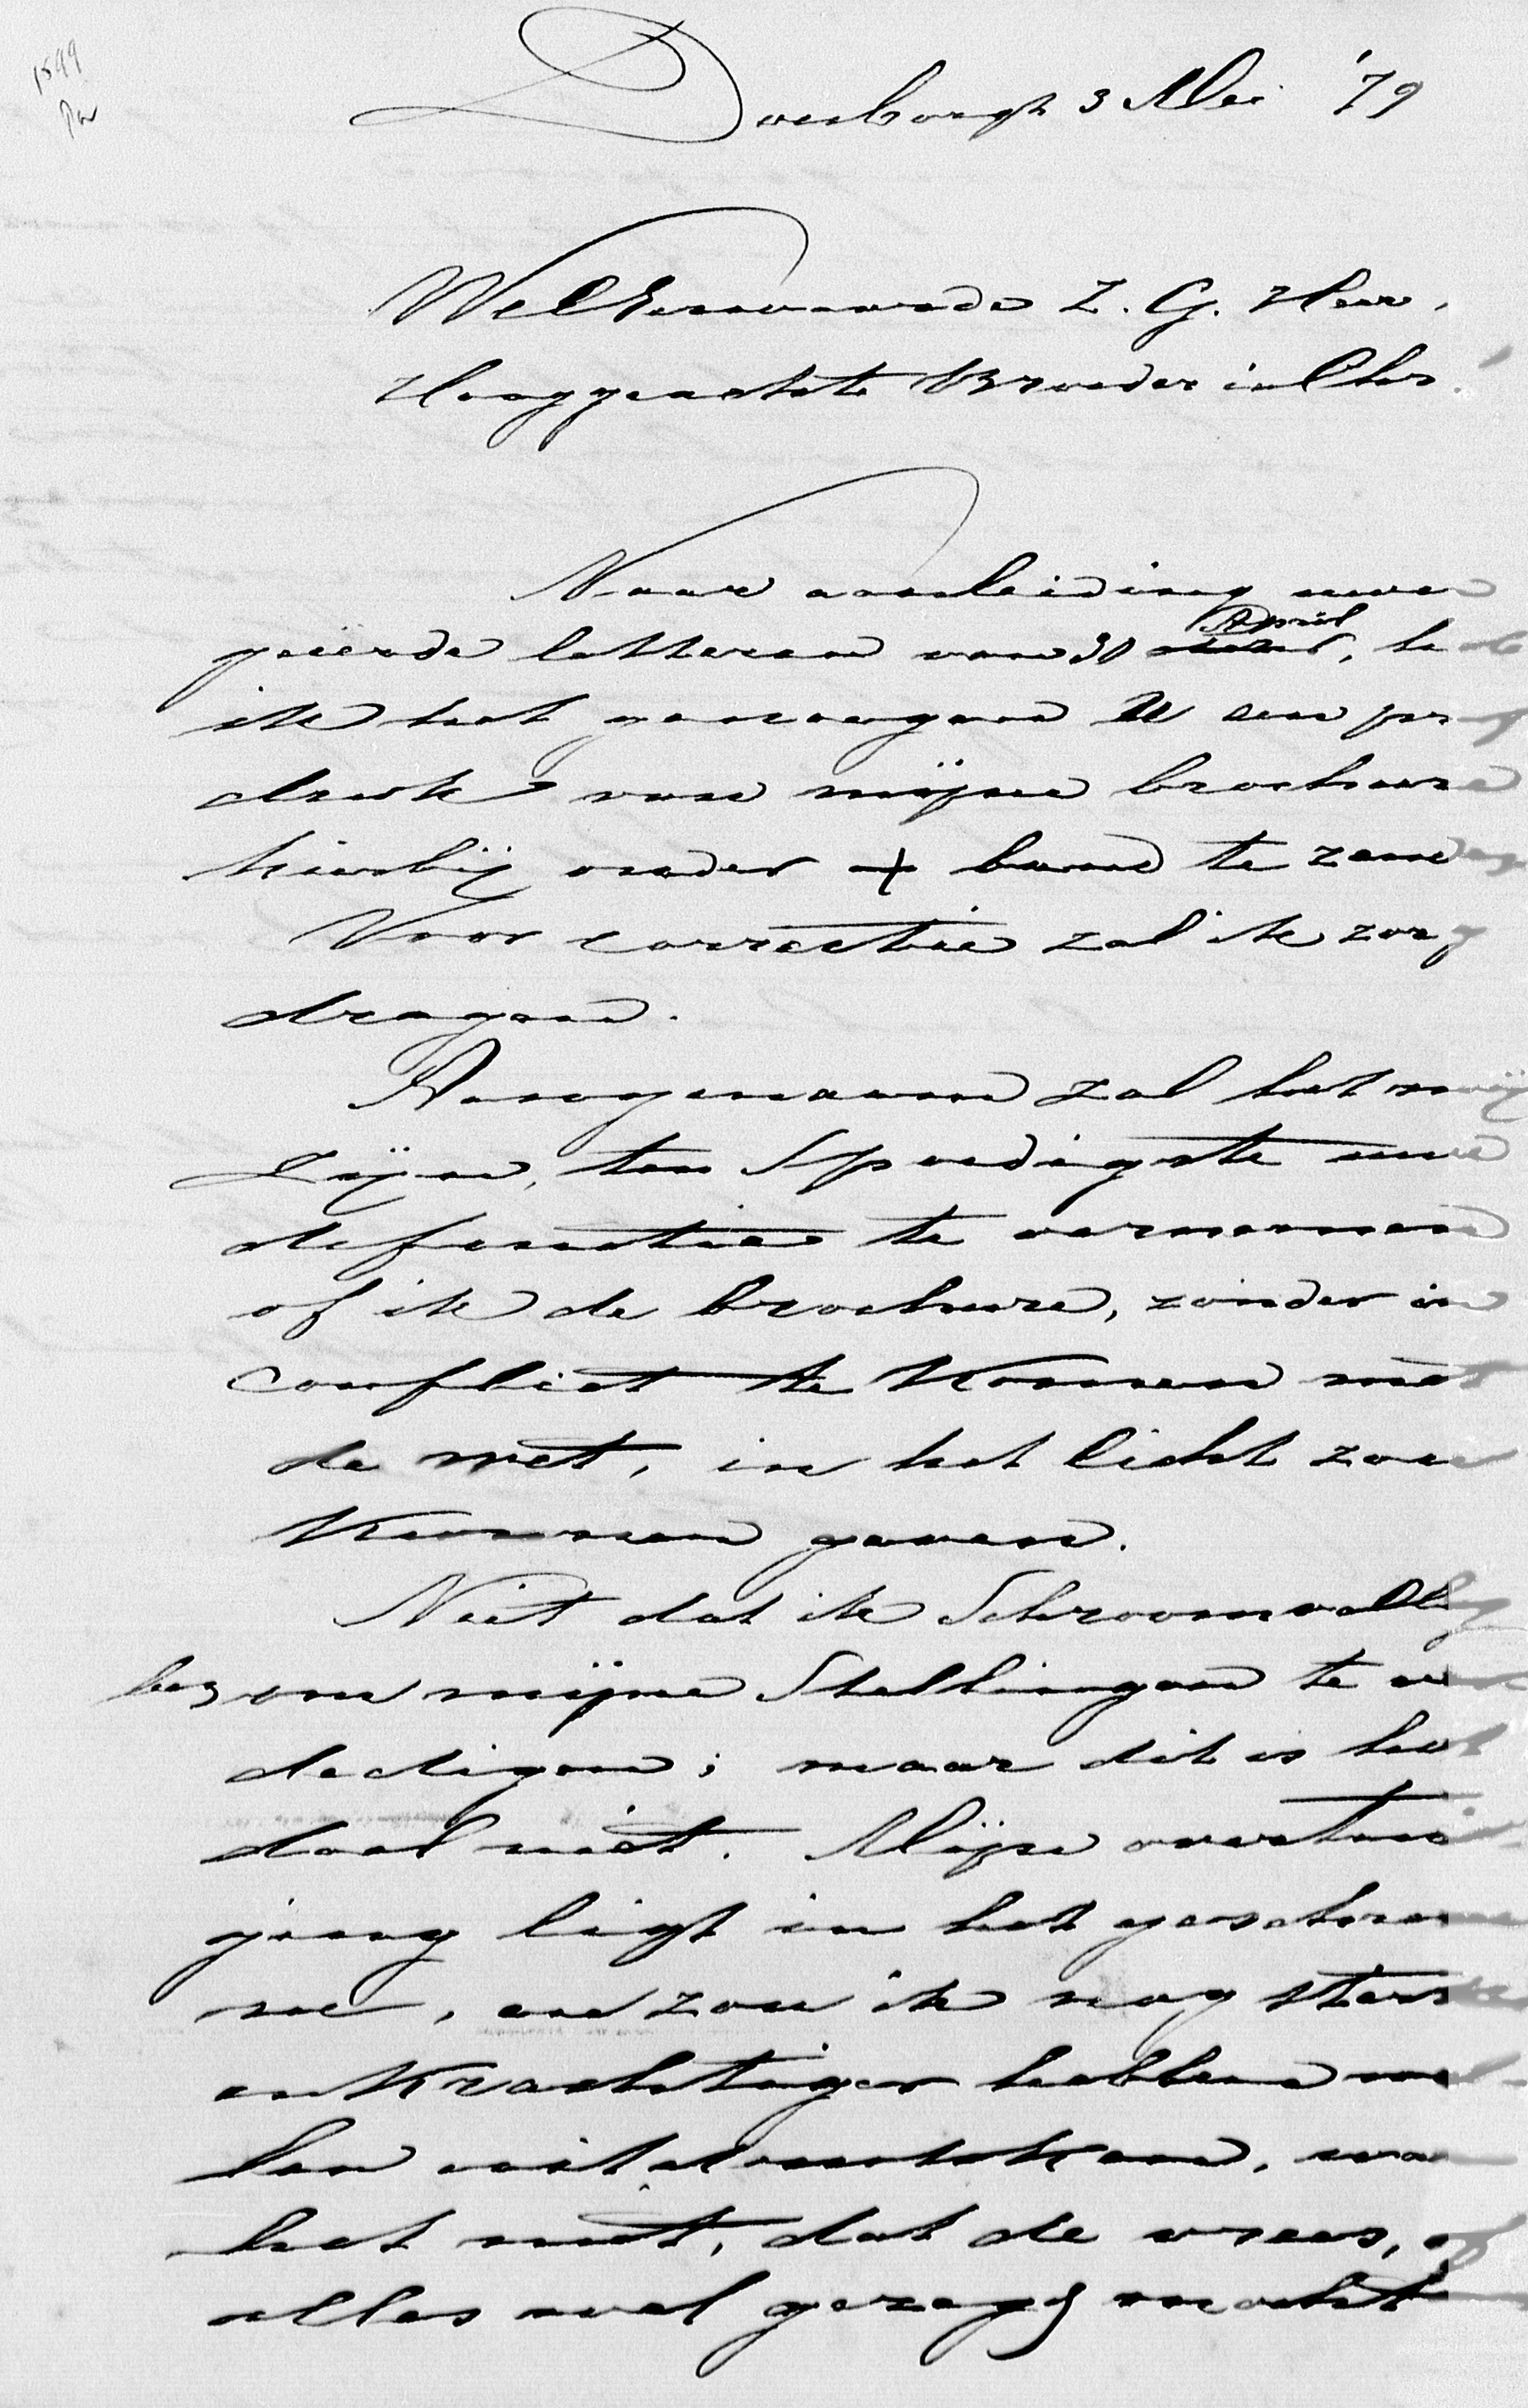 1599
Doesborgh 3 Mei '79
WelEerwaarde Z. G. Heer,
Hooggeachte Broeder in Chr.!
Naar aanleiding uwer
geëerde letteren van 30 April, heb
ik het genoegen U een proef
druk van mijne brochure
hierbij onder + band te zenden
Voor correctie zal ik zorg
dragen.
Aangenaam zal het mij
zijn, ten Spoedigste uwe
definitie te vernemen
of ik de brochure, zonder in
conflict te komen met
de wet, in het licht zou
kunnen geven.
Niet dat ik Schroomvallig
ben om mijne Stellingen te ver
dedigen; maar dit is het
doel niet. Mijn overtui
ging ligt in het geschreve
ne, en zou ik nog sterker
en krachtiger hebben wil-
len uitdrukken, ware
het niet, dat de vrees, of
alles wel gezegd mocht